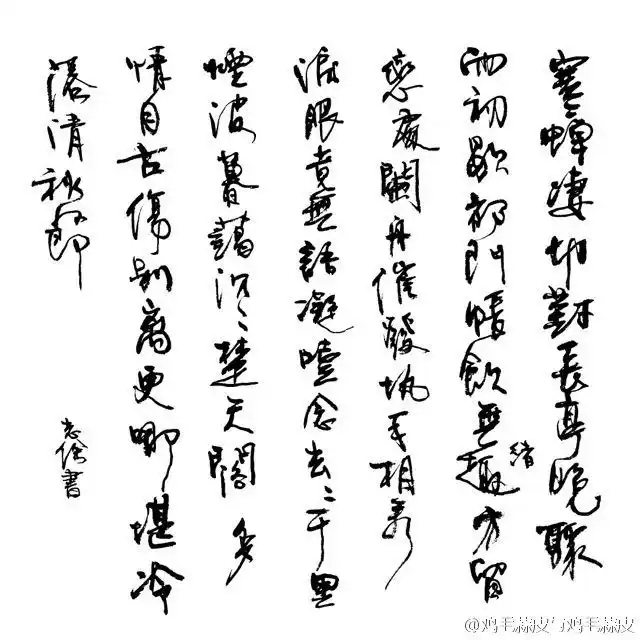 寒蟬凄切對長亭晚驟
雨初歇都門帳飲無趣方留
緒
戀處闌舟催發執手相看
淚眼竟無語凝噎念去〻千里
煙波暮藹沉〻楚天闊多
情自古傷別離更哪堪冷
落清秋節
書
@鸡毛蒜皮与鸡毛蒜皮